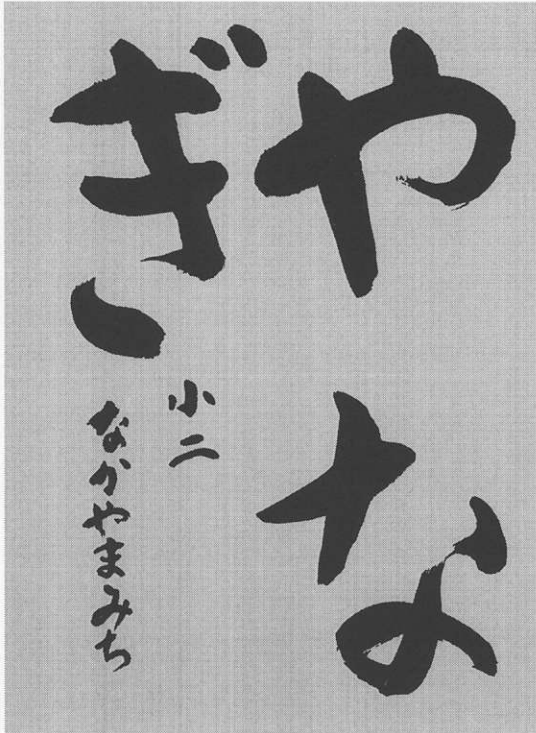 やな
ぎ
小二
なかやまみち